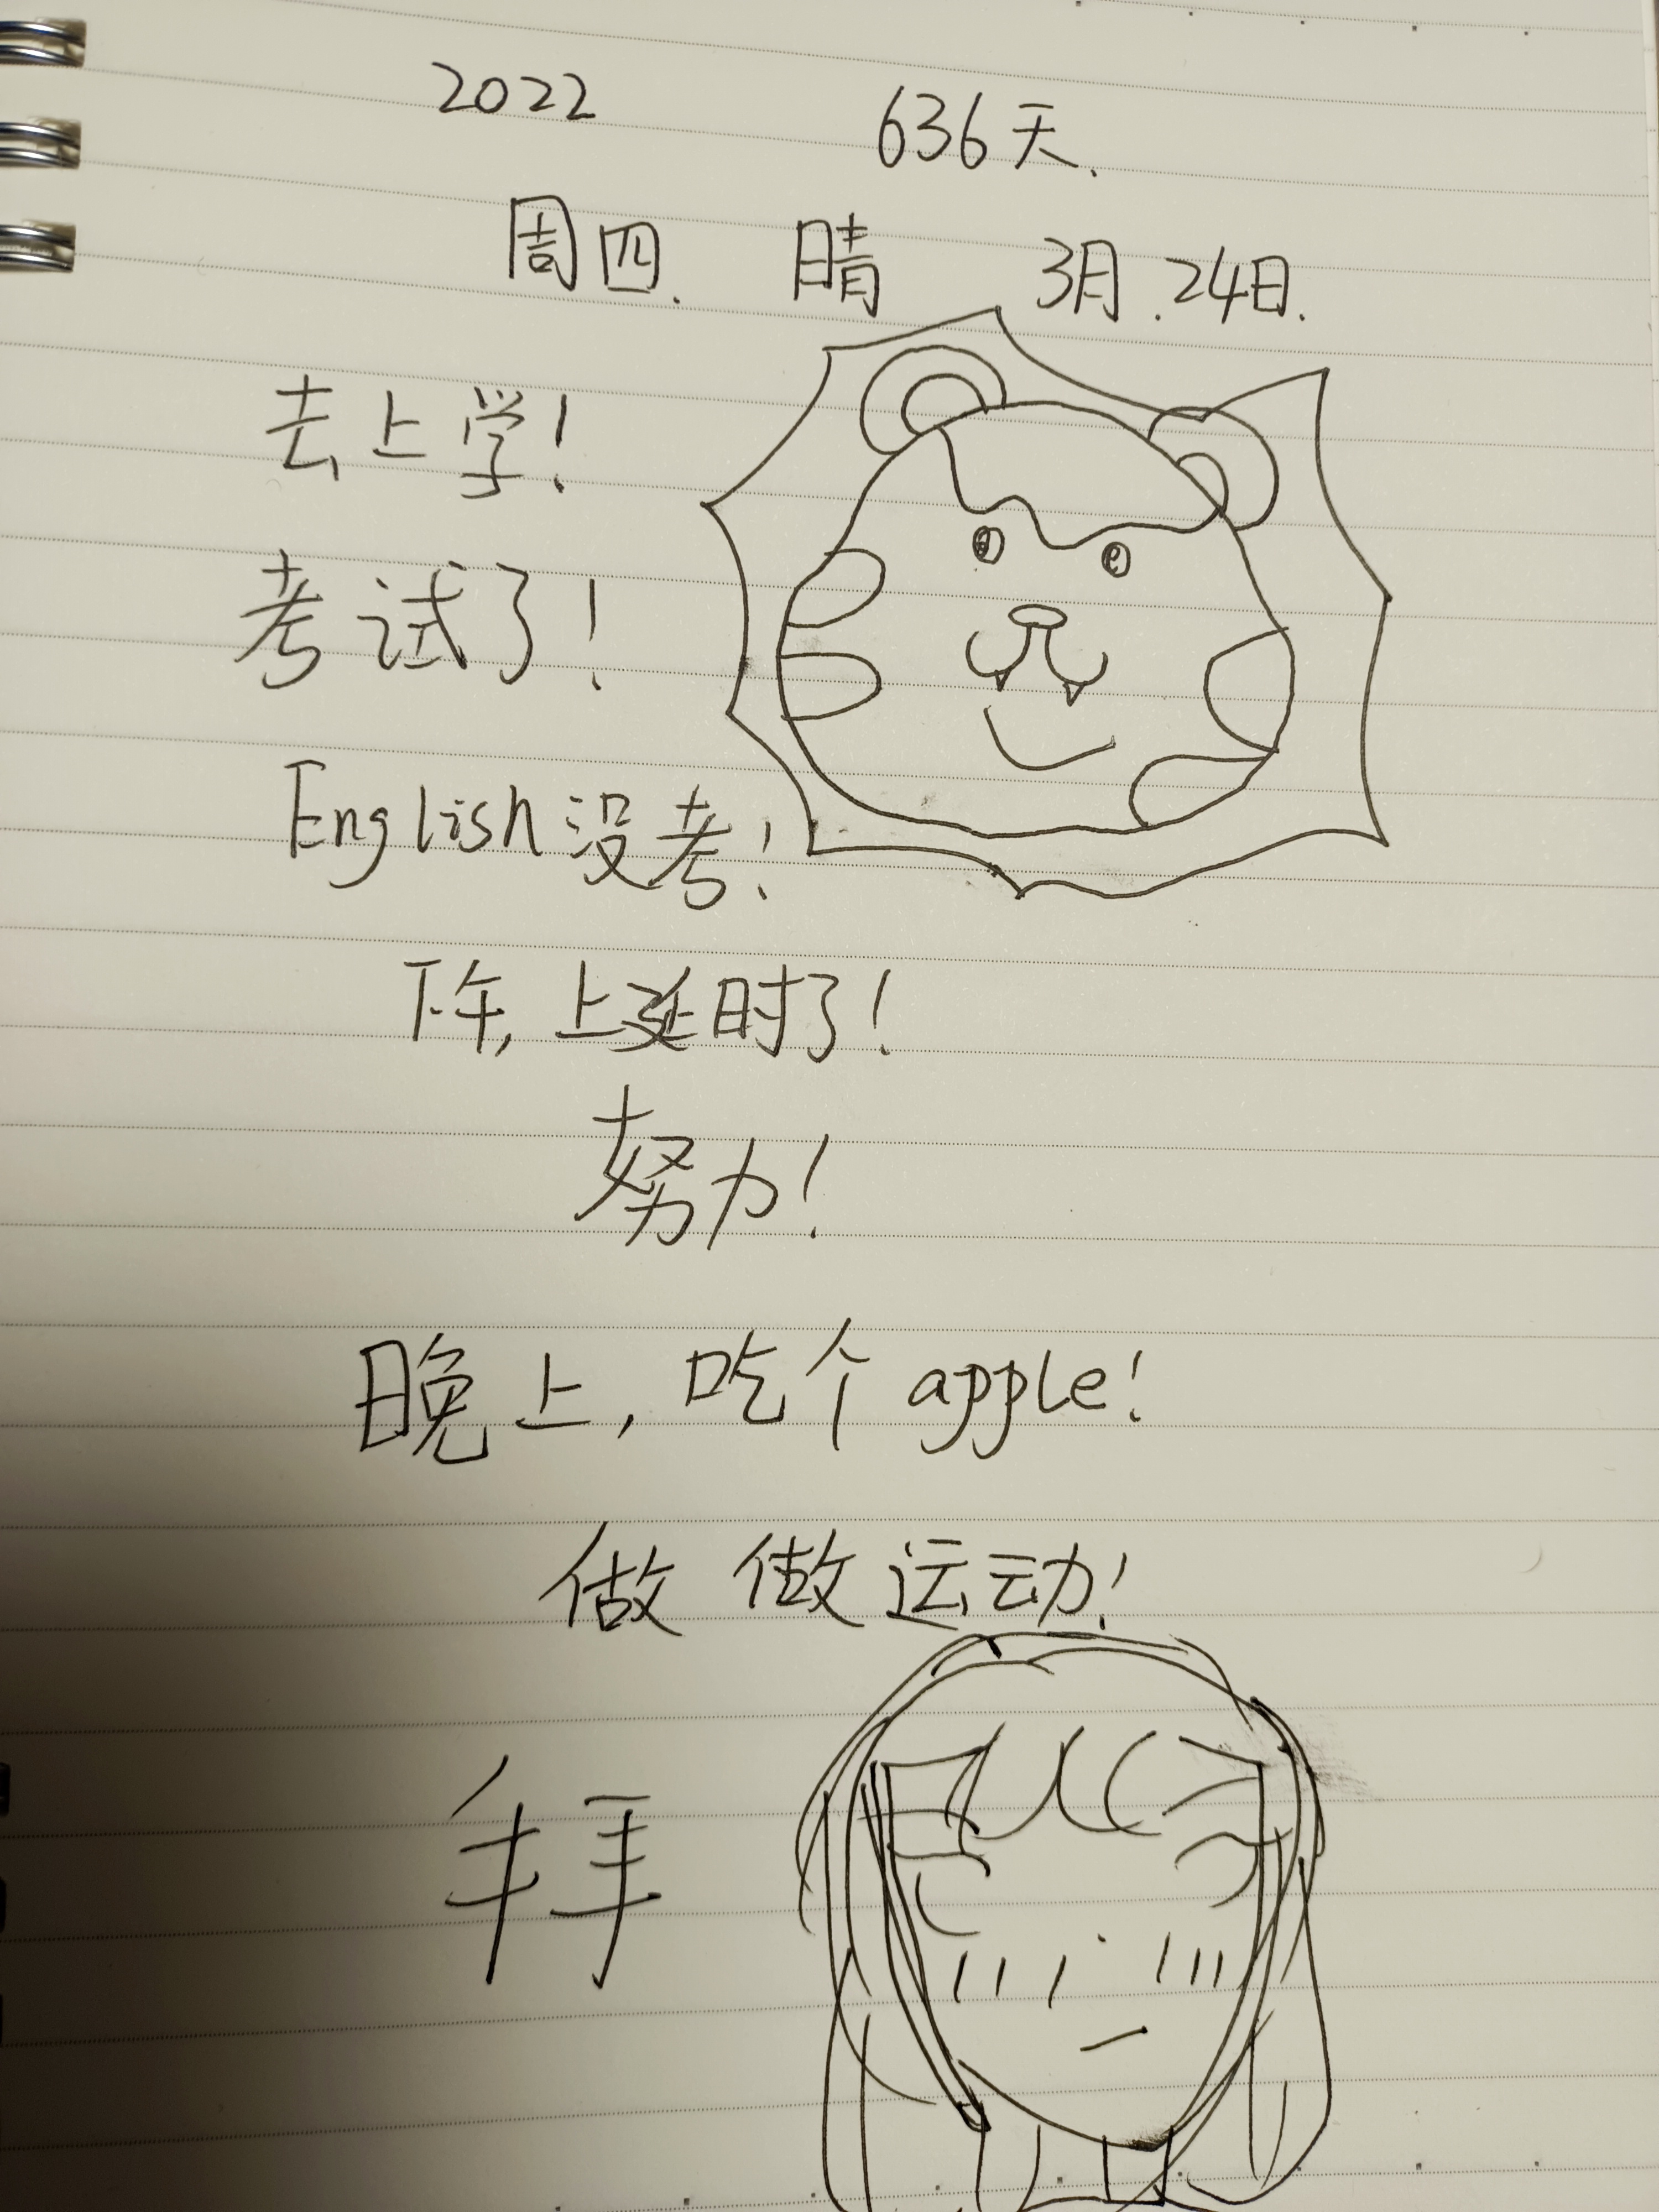 2022 636天.
周四. 晴 3月.24日.
去上学!
考试了!
English没考!
下午,上延时了!
努力!
晚上,吃个apple!
做做运动!
拜